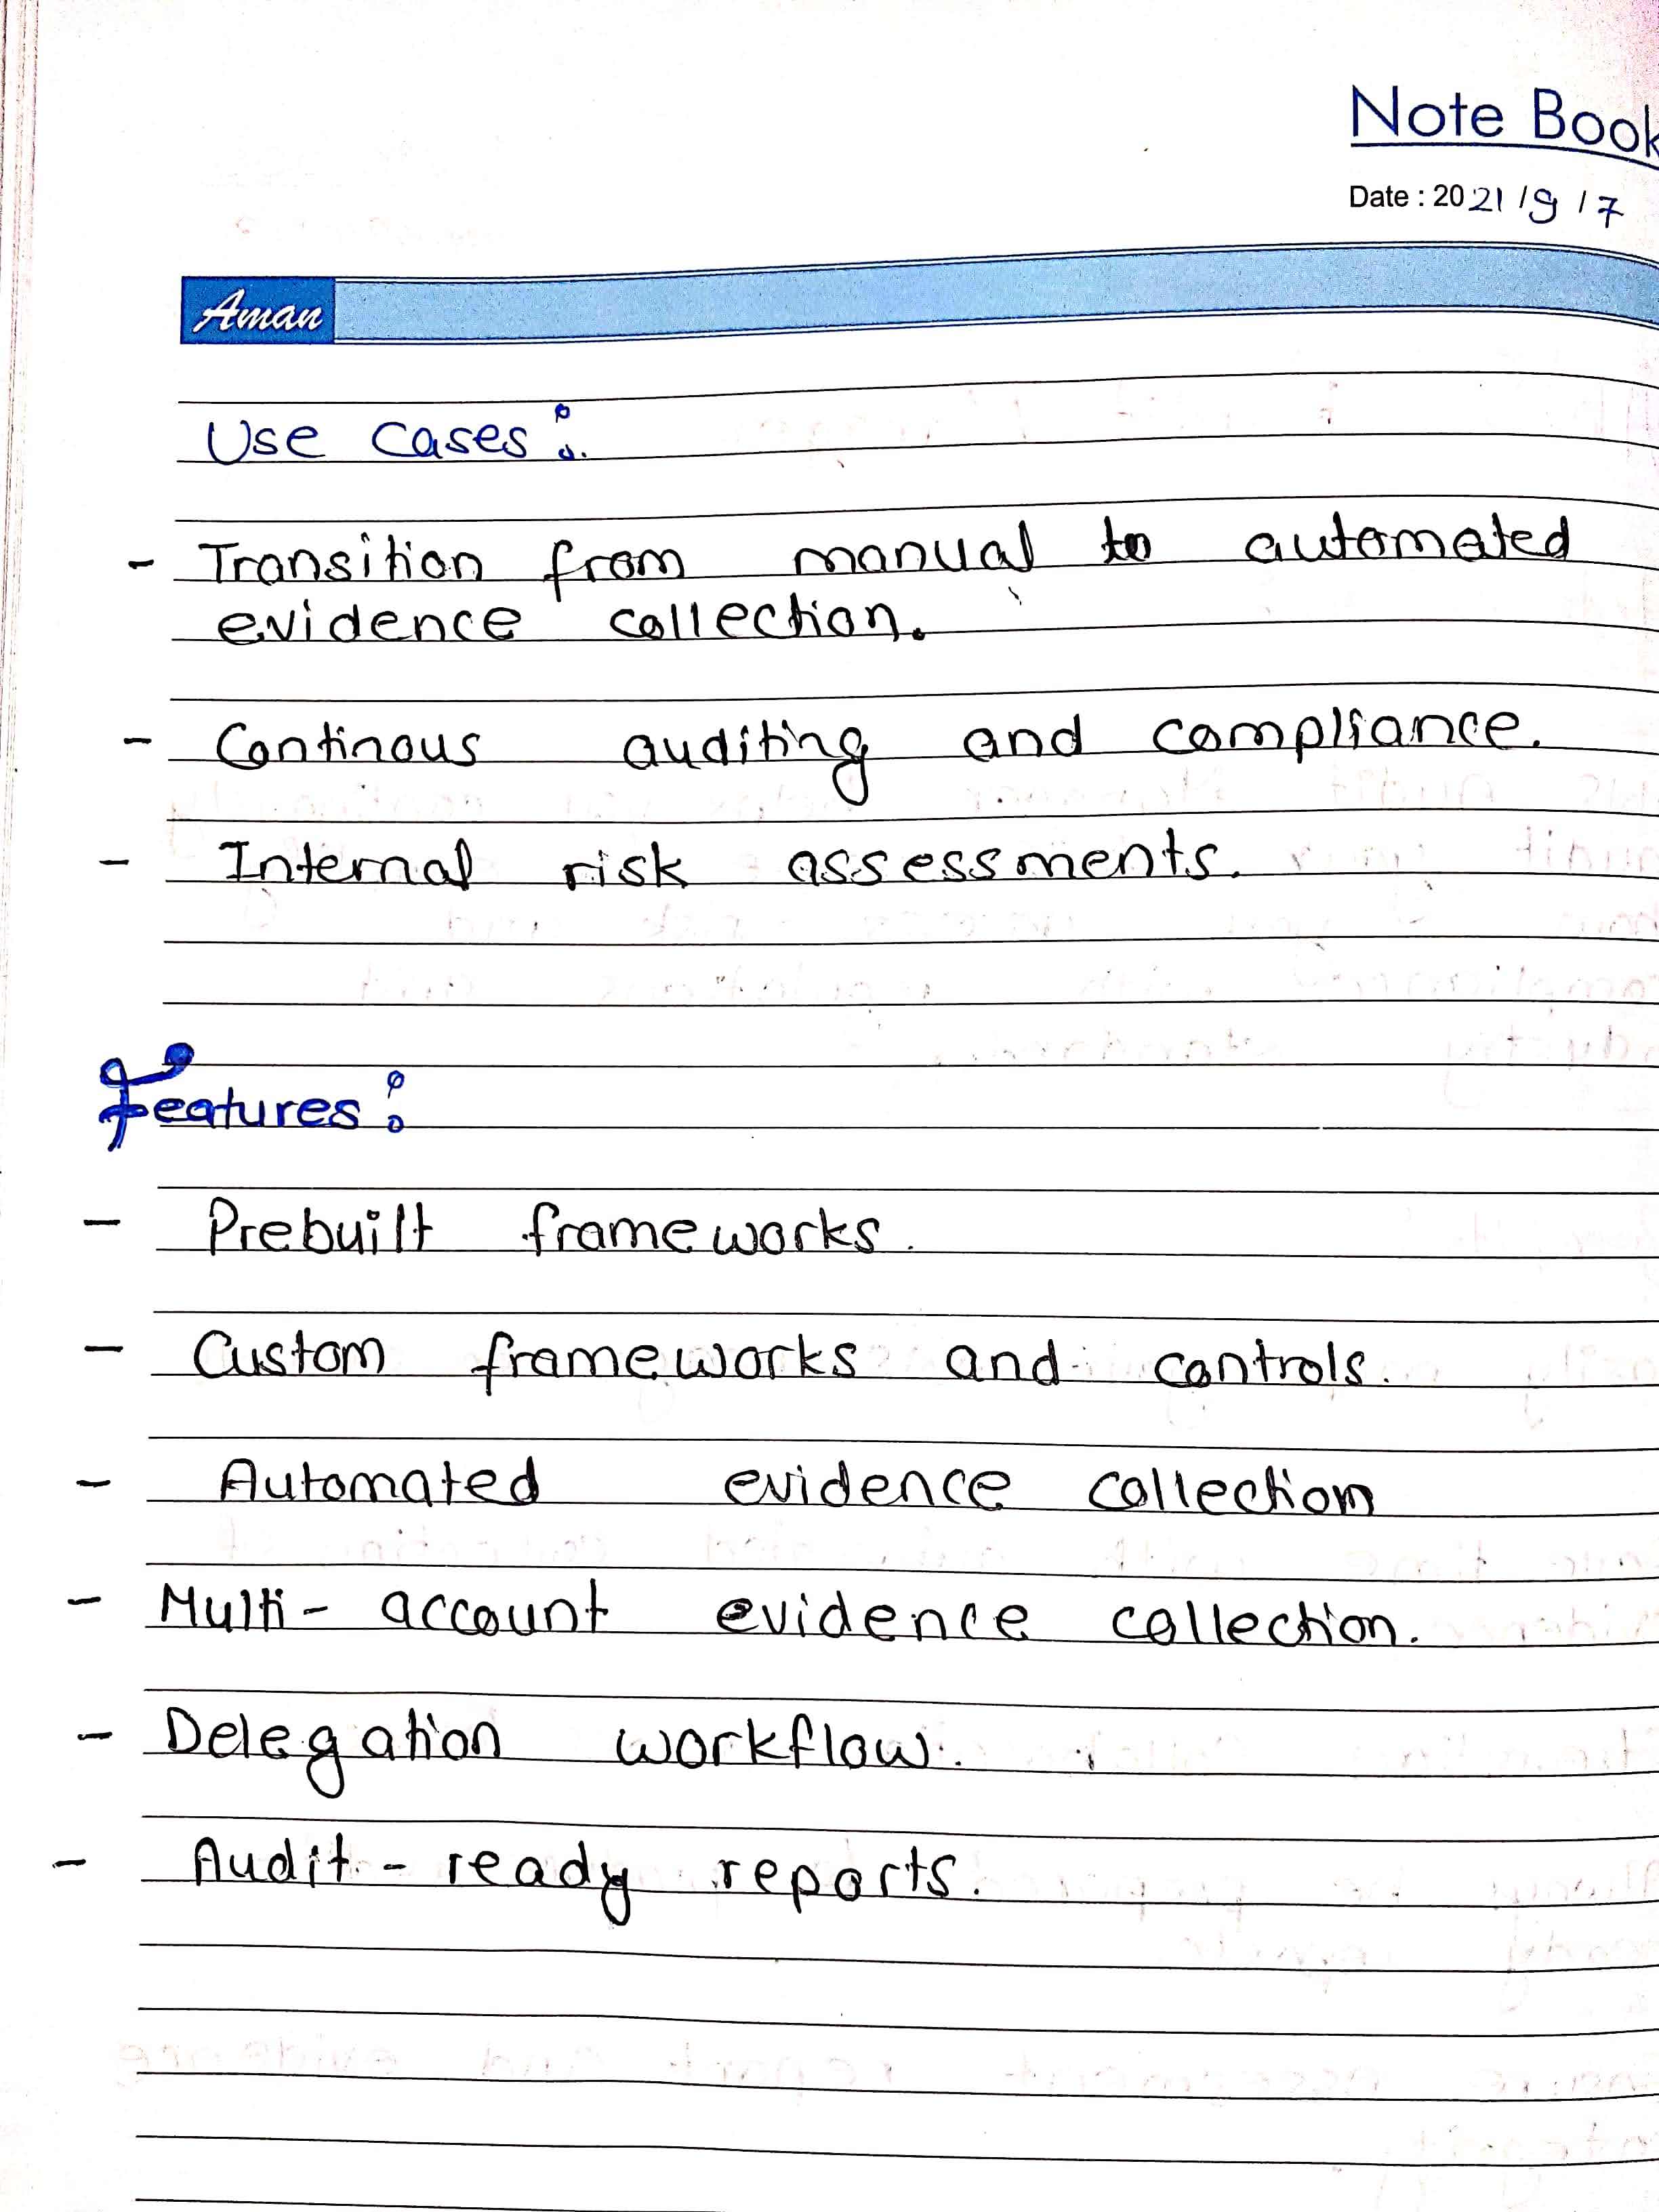 Note Book
Date : 2021/9/7
Aman
Use cases :
- Transition from manual to automated
evidence collection.
- Continous auditing and compliance.
- Internal risk assessments.
Features :
- Prebuilt frameworks.
- Custom frameworks and controls.
- Automated evidence collection
- Multi - account evidence collection.
- Delegation workflow.
- Audit - ready reports.